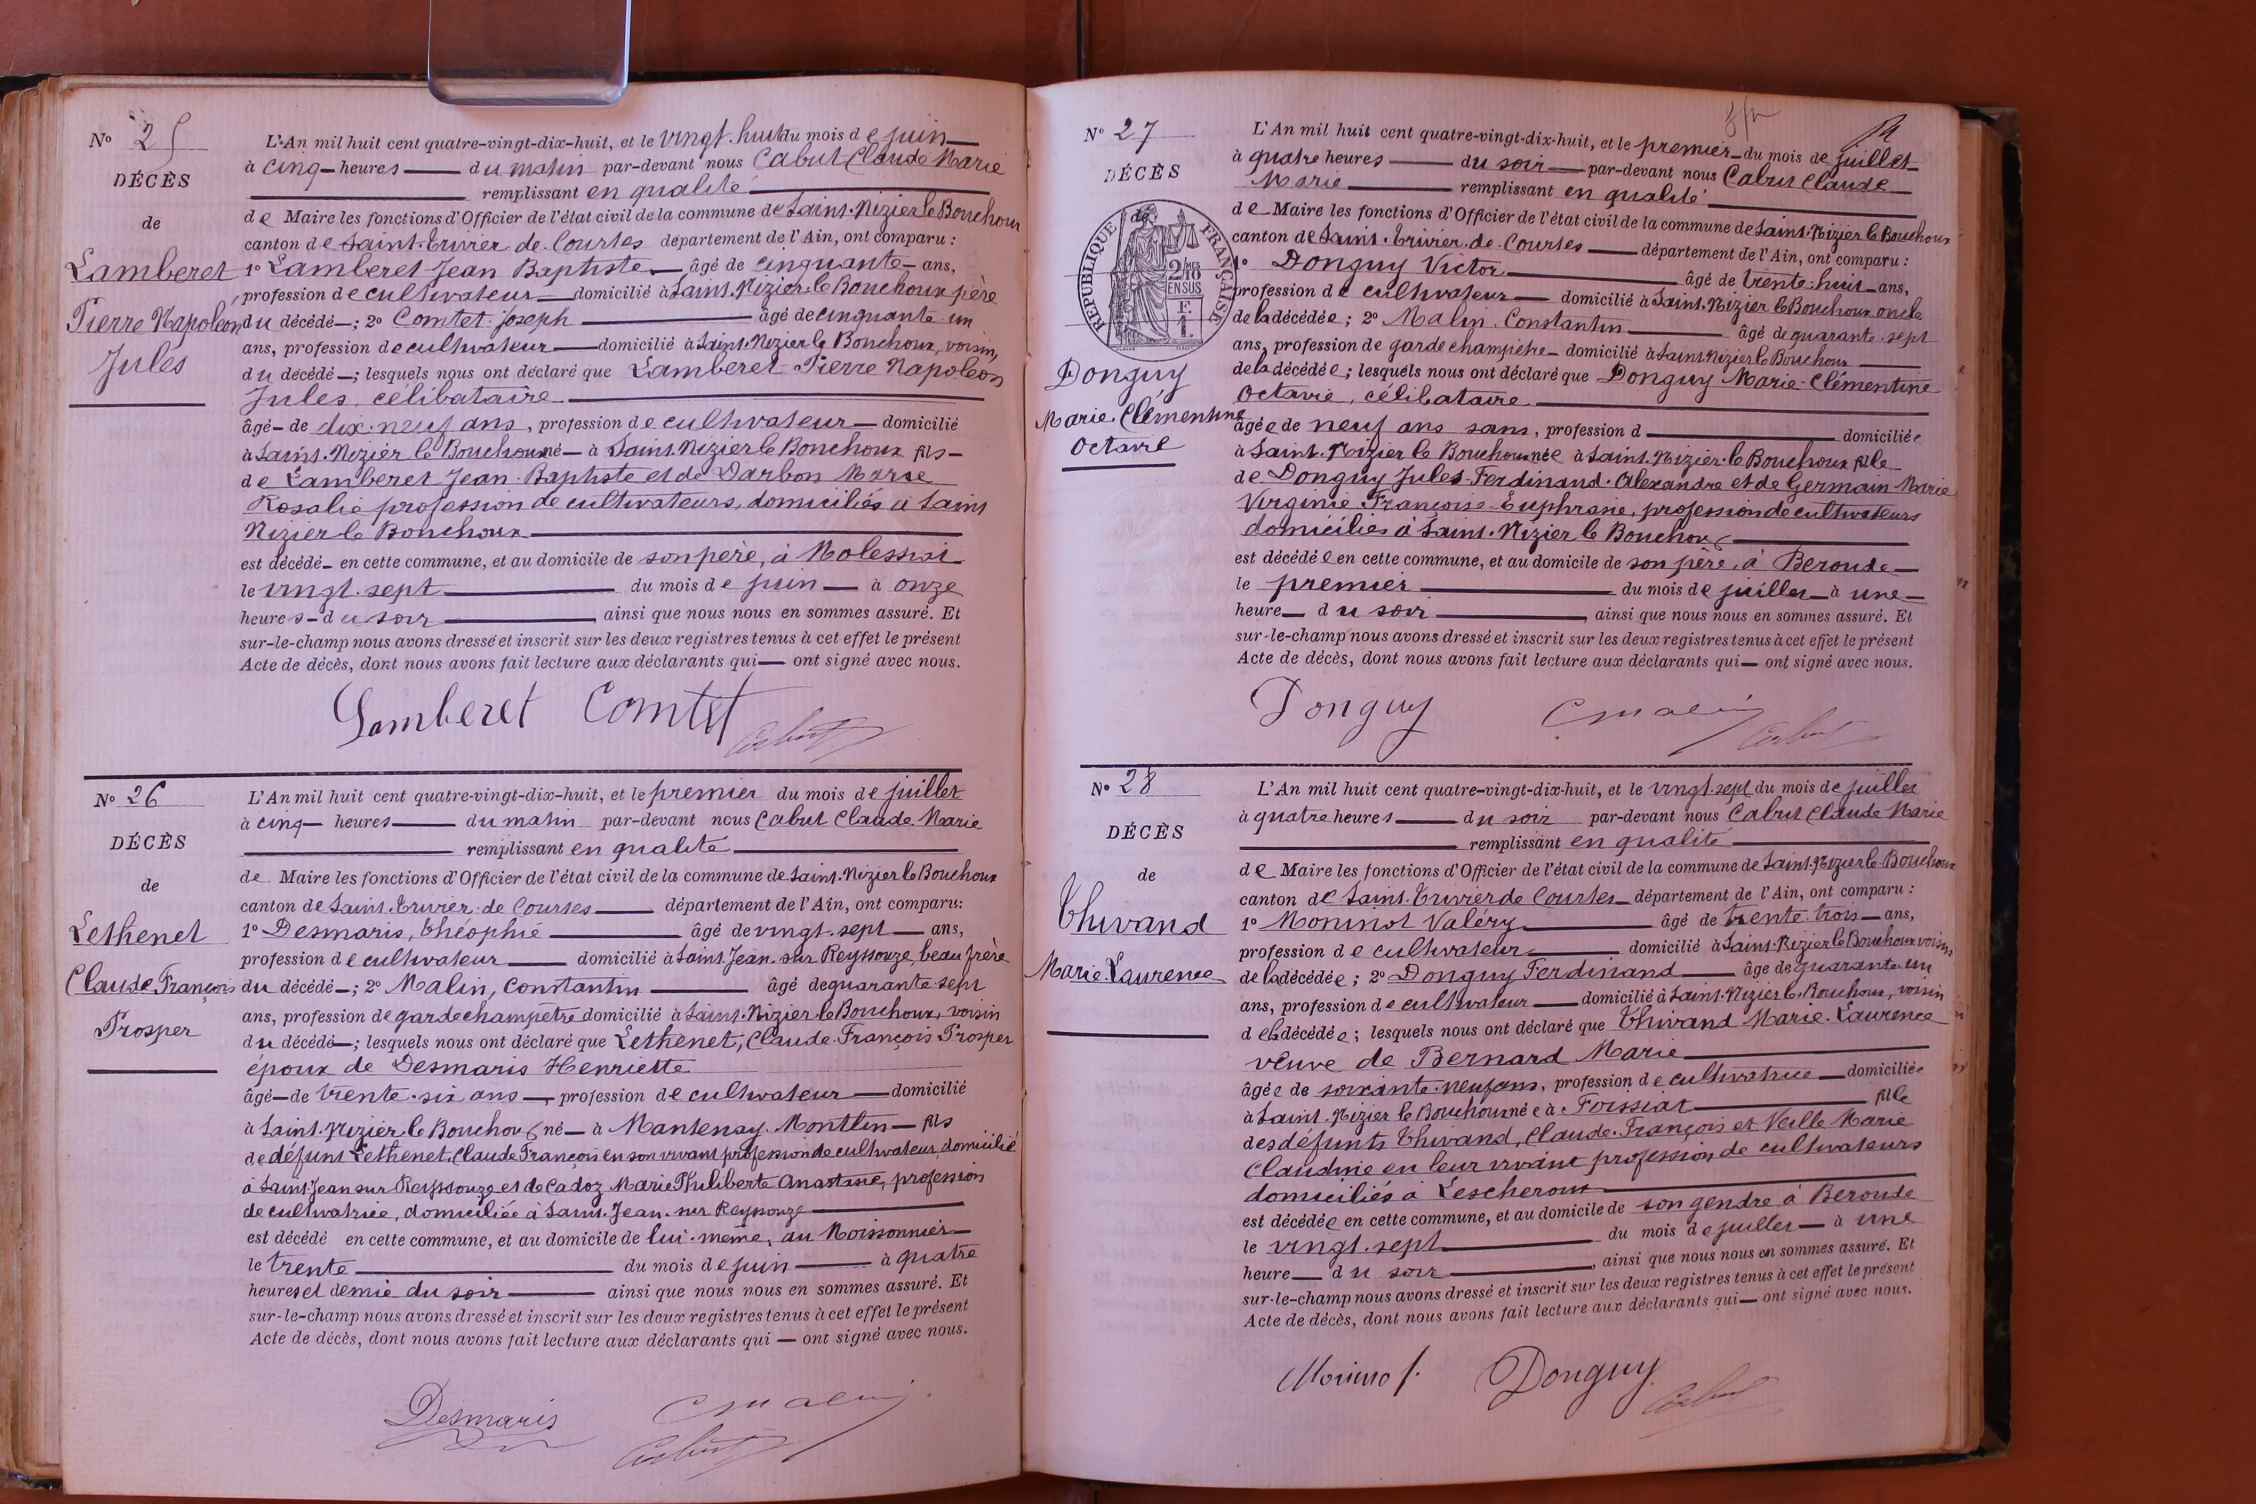 N° 25
DÉCÈS
de
Lamberet
Pierre Napoléon
Jules
L'An mil huit cent quatre-vingt-dix-huit, et le vingt-huit du mois de juin
à cinq heures du matin par-devant nous Cabut Claude Marie
remplissant en qualité
de Maire les fonctions d'Officier de l'état civil de la commune de Saint-Nizier le Bouchoux
canton de Saint-Trivier-de-Courtes département de l'Ain, ont comparu :
1° Lamberet Jean Baptiste âgé de cinquante ans,
profession de cultivateur domicilié à Saint-Nizier le Bouchoux père
du décédé ; 2° Comtet Joseph âgé de cinquante un
ans, profession de cultivateur domicilié à Saint-Nizier le Bouchoux, voisin,
du décédé ; lesquels nous ont déclaré que Lamberet Pierre Napoléon
Jules, célibataire
âgé de dix-neuf ans, profession de cultivateur domicilié
à Saint-Nizier le Bouchoux né à Saint-Nizier le Bouchoux fils
de Lamberet Jean-Baptiste et de Darbon Marie
Rosalie profession de cultivateurs, domiciliés à Saint
Nizier le Bouchoux
est décédé en cette commune, et au domicile de son père, à Molessiat
le vingt-sept du mois de juin à onze
heures du soir ainsi que nous nous en sommes assuré. Et
sur-le-champ nous avons dressé et inscrit sur les deux registres tenus à cet effet le présent
Acte de décès, dont nous avons fait lecture aux déclarants qui ont signé avec nous.
Lamberet Comtet Cabut
N° 26
DÉCÈS
de
Lethenet
Claude François
Prosper
L'An mil huit cent quatre-vingt-dix-huit, et le premier du mois de juillet
à cinq heures du matin par-devant nous Cabut Claude Marie
remplissant en qualité
de Maire les fonctions d'Officier de l'état civil de la commune de Saint-Nizier le Bouchoux
canton de Saint-Trivier-de-Courtes département de l'Ain, ont comparu:
1° Desmaris, Théophile âgé de vingt-sept ans,
profession de cultivateur domicilié à Saint Jean-sur Reyssouze, beau frère
du décédé ; 2° Malin, Constantin âgé de quarante-sept
ans, profession de garde champêtre domicilié à Saint-Nizier le Bouchoux, voisin
du décédé ; lesquels nous ont déclaré que Lethenet, Claude-François Prosper
époux de Desmaris Henriette
âgé de trente-six ans, profession de cultivateur domicilié
à Saint-Nizier le Bouchoux né à Mantenay-Montlin fils
de défunt Lethenet, Claude François en son vivant profession de cultivateur, domicilié
à Saint Jean sur Reyssouze et de Cadoz Marie Philiberte Anastasie, profession
de cultivatrice, domiciliée à Saint-Jean-sur Reyssouze
est décédé en cette commune, et au domicile de lui-même, au Moissonnier
le trente du mois de juin à quatre
heures et demie du soir ainsi que nous nous en sommes assuré. Et
sur-le-champ nous avons dressé et inscrit sur les deux registres tenus à cet effet le présent
Acte de décès, dont nous avons fait lecture aux déclarants qui ont signé avec nous.
Desmaris C Malin
Cabut
N° 27
DÉCÈS
de
RÉPUBLIQUE FRANÇAISE
2/10
EN SUS
Donguy
Marie-Clémentine
Octavie
L'An mil huit cent quatre-vingt-dix-huit, et le premier du mois de juillet
à quatre heures du soir par-devant nous Cabut Claude
Marie remplissant en qualité
de Maire les fonctions d'Officier de l'état civil de la commune de Saint-Nizier le Bouchoux
canton de Saint-Trivier-de-Courtes département de l'Ain, ont comparu :
1° Donguy Victor âgé de trente-huit ans,
profession de cultivateur domicilié à Saint-Nizier le Bouchoux oncle
de la décédée ; 2° Malin Constantin âgé de quarante-sept
ans, profession de garde champêtre domicilié à Saint Nizier le Bouchoux
de la décédée ; lesquels nous ont déclaré que Donguy Marie-Clémentine
Octavie, célibataire
âgée de neuf ans sans, profession d domiciliée
à Saint-Nizier le Bouchoux née à Saint-Nizier-le Bouchoux fille
de Donguy Jules-Ferdinand-Alexandre et de Germain Marie
Virginie Françoise-Euphrasie, profession de cultivateurs
domiciliés à Saint-Nizier le Bouchoux
est décédée en cette commune, et au domicile de son père, à Beroude
le premier du mois de juillet à une
heure du soir ainsi que nous nous en sommes assuré. Et
sur-le-champ nous avons dressé et inscrit sur les deux registres tenus à cet effet le présent
Acte de décès, dont nous avons fait lecture aux déclarants qui ont signé avec nous.
Donguy C Malin Cabut
N° 28
DÉCÈS
de
Thivand
Marie-Laurence
L'An mil huit cent quatre-vingt-dix-huit, et le vingt-sept du mois de juillet
à quatre heures du soir par-devant nous Cabut Claude Marie
remplissant en qualité
de Maire les fonctions d'Officier de l'état civil de la commune de Saint-Nizier le Bouchoux
canton de Saint-Trivier de Courtes département de l'Ain, ont comparu :
1° Moninot Valéry âgé de trente-trois ans,
profession de cultivateur domicilié à Saint-Nizier le Bouchoux voisin
de la décédée ; 2° Donguy Ferdinand âgé de quarante-un
ans, profession de cultivateur domicilié à Saint-Nizier le Bouchoux, voisin
de la décédée ; lesquels nous ont déclaré que Thivand Marie-Laurence
veuve de Bernard Marie
âgée de soixante-neuf ans, profession de cultivatrice domiciliée
à Saint-Nizier le Bouchoux née à Foissiat fille
des défunts Thivand, Claude-François et Veille Marie
Claudine en leur vivant profession de cultivateurs
domiciliés à Lescheroux
est décédée en cette commune, et au domicile de son gendre à Beroude
le vingt-sept du mois de juillet à une
heure du soir, ainsi que nous nous en sommes assuré. Et
sur-le-champ nous avons dressé et inscrit sur les deux registres tenus à cet effet le présent
Acte de décès, dont nous avons fait lecture aux déclarants qui ont signé avec nous.
Moninot Donguy Cabut